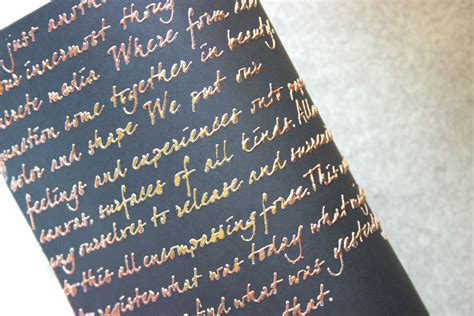 just another
our innermost though
crete media. Where form and
function come together in beauty
color and shape We put our
feelings and experiences onto
canvas, surfaces of all kinds. Allow
ing ourselves to release and
to this all encompassing force. This
to register what was today what
find what was yesterday
that.